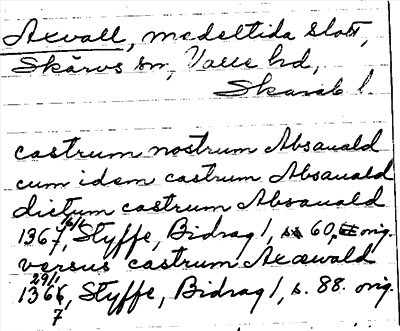 Axvall, medeltida slott,
Skärvs sn, Valle hd,
Skarab l.
castrum nostrum Absauald
cum idem castrum Absauald
dictum castrum Absauald
1367, Styffe, Bidrag 1, s. 60, orig.
versus castrum Axæwald
29/1
1366, Styffe, Bidrag 1, s. 88. orig.
7